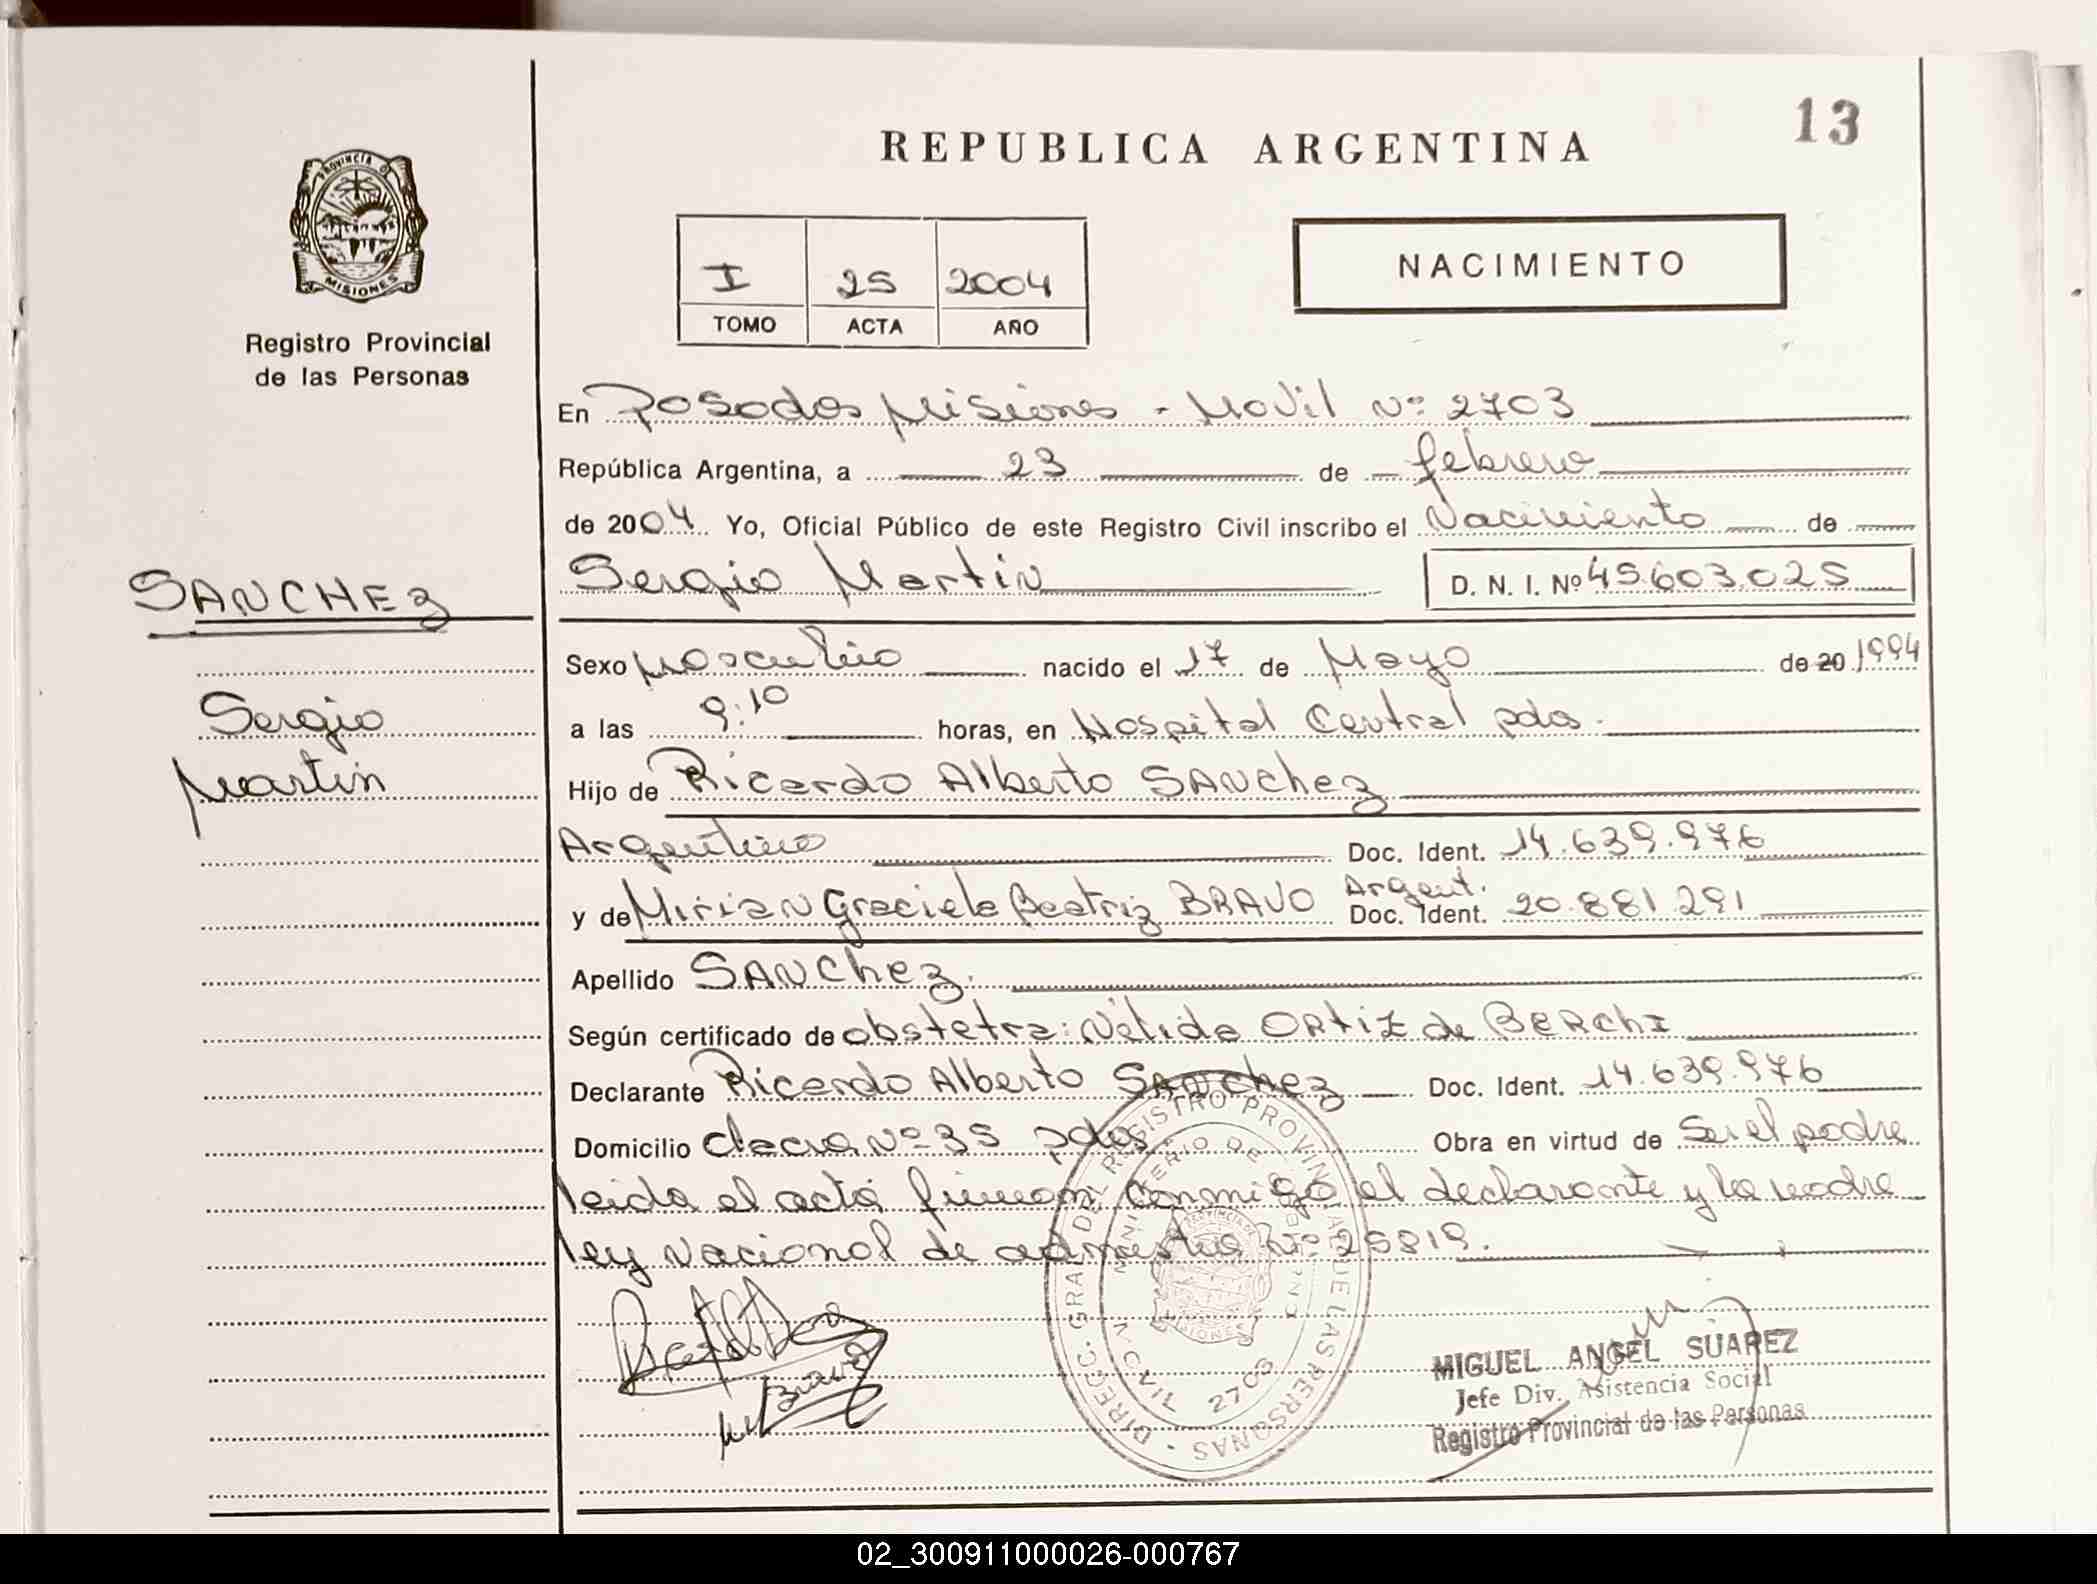 13
REPUBLICA ARGENTINA
PROVINCIA DE
MISIONES
Registro Provincial
de las Personas
NACIMIENTO
I 25 2004
TOMO ACTA AÑO
En Posadas Misiones - Movil Nº 2703
República Argentina, a 23 de febrero
de 2004 Yo, Oficial Público de este Registro Civil inscribo el Nacimiento de
SANCHEZ
Sergio Martin D. N. I. Nº 45.603.025
Sexo Masculino nacido el 17 de Mayo de 20 1994
Sergio
Martin
a las 9:10 horas, en Hospital Central pdas.
Hijo de Ricardo Alberto SANchez
Argentino Doc. Ident. 14.639.976
y de Mirian Graciela Beatriz BRAVO Argent. Doc. Ident. 20.881.291
Apellido SANchez.
Según certificado de obstetra: Nélida ORtiz de BERchI
Declarante Ricardo Alberto SANchez Doc. Ident. 14.639.976
Domicilio chacra Nº 35 pdas Obra en virtud de Ser el padre
leida el acta firman conmigo el declarante y la madre
ley Nacional de Nº 25819.
DIRECC. GRAL DEL REGISTRO PROVINCIAL DE LAS PERSONAS
MINISTERIO DE GOBIERNO
MOVIL 2703
Bravo
MIGUEL ANGEL SUAREZ
Jefe Div. Asistencia Social
Registro Provincial de las Personas
02_300911000026-000767